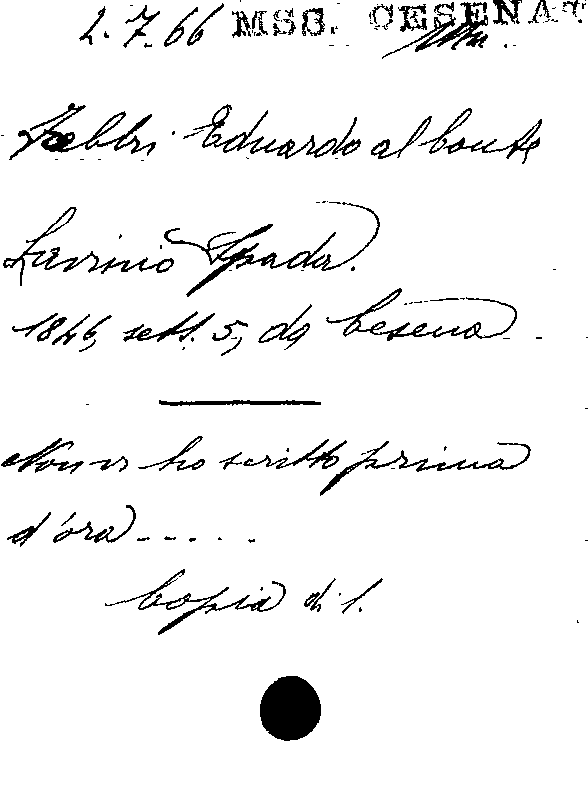 2.7.66 MSS. CESENAT
Fabbri Eduardo al Conte
Lavinio Spada.
1846, sett. 5, da Cesena
Non vi ho scritto prima
d'ora.....
Copia di l.